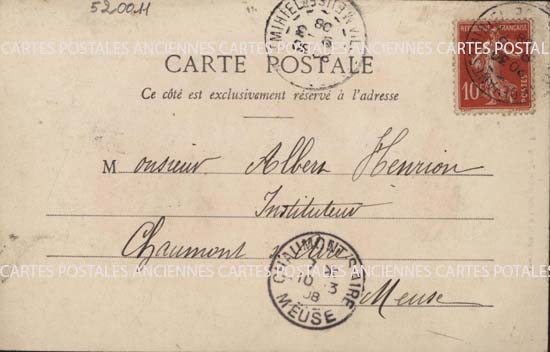 52004
ST MIHIEL MEUSE
08
RÉPUBLIQUE FRANÇAISE
10 POSTES
CARTES POSTALES ANCIENNES CARTES POSTALES ANCIENNES
CARTE POSTALE
Ce côté est exclusivement réservé à l'adresse
Monsieur Albert Henrion
Instituteur
Chaumont s/ Aire
Meuse
CHAUMONT S/ AIRE
10 3
08
MEUSE
CARTES POSTALES ANCIENNES CARTES POSTALES ANCIENNES